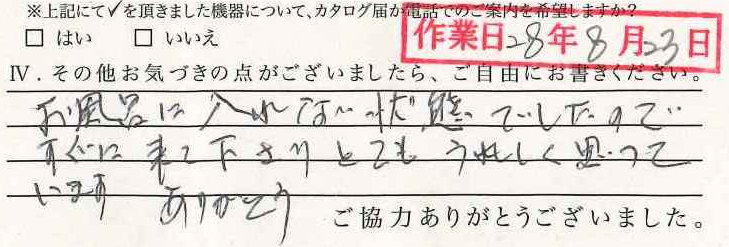 ※上記にて✓を頂きました機器について、カタログ届か電話でのご案内を希望しますか?
□ はい □ いいえ
作業日28年8月23日
Ⅳ．その他お気づきの点がございましたら、ご自由にお書きください。
お風呂に入れない状態でしたので
すぐに来て下さりとてもうれしく思って
います ありがとう
ご協力ありがとうございました。